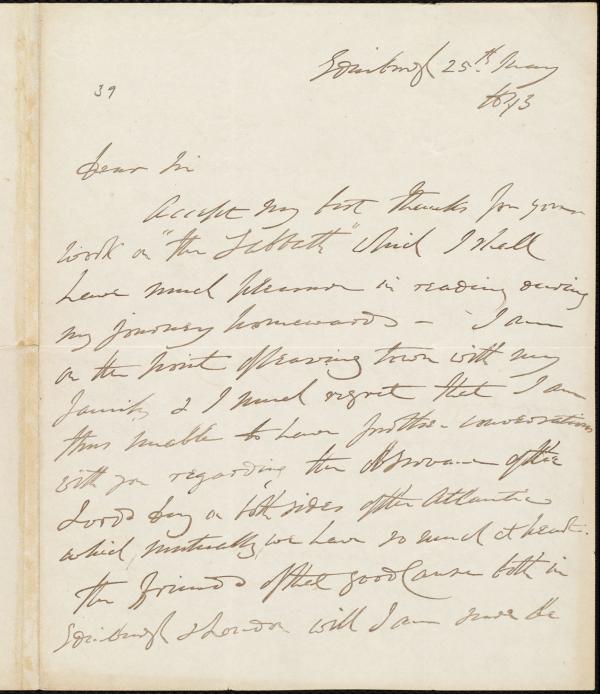 Edinburgh 25th May
1843
39
Dear Sir
Accept my best thanks for your
work on "the Sabbath" which I shall
have much pleasure in reading during
my journey homewards - I am
on the point of leaving town with my
family & I much regret that I am
thus unable to have further conversation
with you regarding the observance of the
Lords day on both sides of the Atlantic
which, mutually, we have so much at heart.
The friends of that good Cause both in
Edinburgh & London will I am sure be